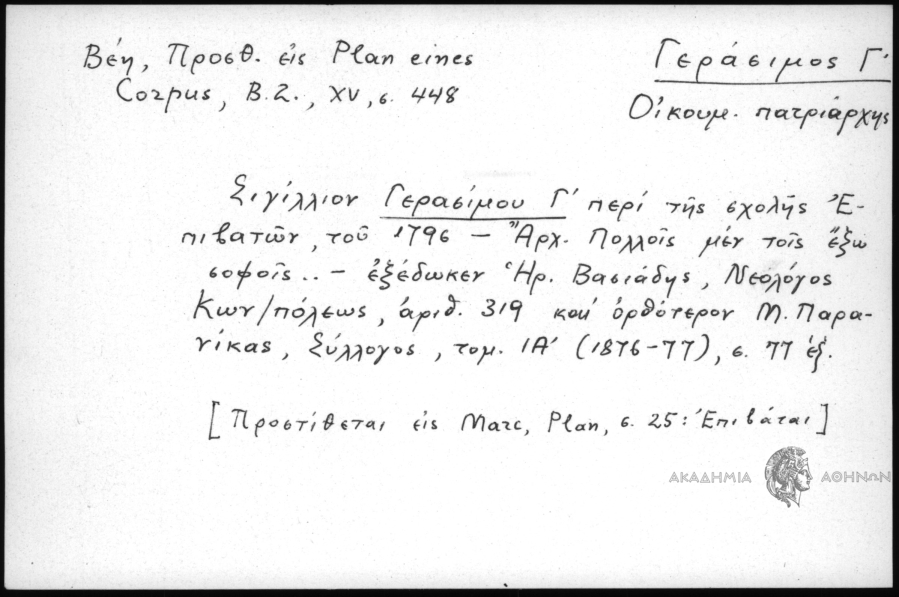 Βέη, Προσθ. εἰς Plan eines
Corpus, B.Z., XV, σ. 448
Γεράσιμος Γ'
Οἰκουμ. πατριάρχης
Σιγίλλιον Γερασίμου Γ' περὶ τῆς σχολῆς Ἐ-
πιβατῶν, τοῦ 1796 — Ἀρχ. Πολλοῖς μὲν τοῖς ἔξω
σοφοῖς.. — ἐξέδωκεν Ἡρ. Βασιάδης, Νεολόγος
Κων/πόλεως, ἀριθ. 319 καὶ ὀρθότερον Μ. Παρα-
νίκας, Σύλλογος, τομ. ΙΑ' (1876-77), σ. 77 ἑξ.
[Προστίθεται εἰς Marc, Plan, σ. 25: Ἐπιβάται]
ΑΚΑΔΗΜΙΑ ΑΘΗΝΩΝ